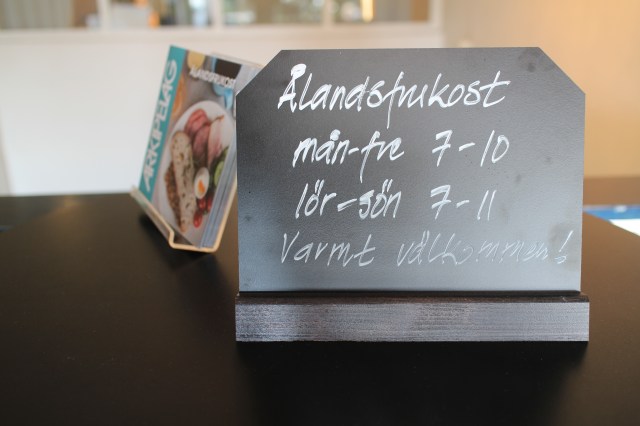 Ålandsfrukost
mån-fre 7-10
lör-sön 7-11
Varmt välkommen!
ARKIPELAG
ÅLANDSFRUKOST